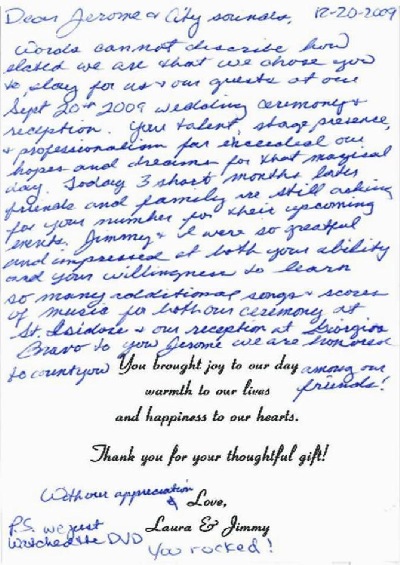 Dear Jerome & City sounds, 12-20-2009
Words cannot describe how
elated we are that we chose you
to play for us & our guests at our
Sept 20th 2009 wedding ceremony &
reception. Your talent, stage presence,
& professionalism far exceeded our
hopes and dreams for that magical
day. Today 3 short months later
friends and family are still asking
for your number for their upcoming
events. Jimmy & I were so greatful
and impressed at both your ability
and your willingness to learn
so many additional songs & scores
of music for both our ceremony at
St. Isidore & our reception at Giorgios
Bravo to you Jerome we are honored
to count you among our
friends!
You brought joy to our day
warmth to our lives
and happiness to our hearts.
Thank you for your thoughtful gift!
With our appreciation
& Love,
Laura & Jimmy
P.S. we just
watched the DVD
You rocked!